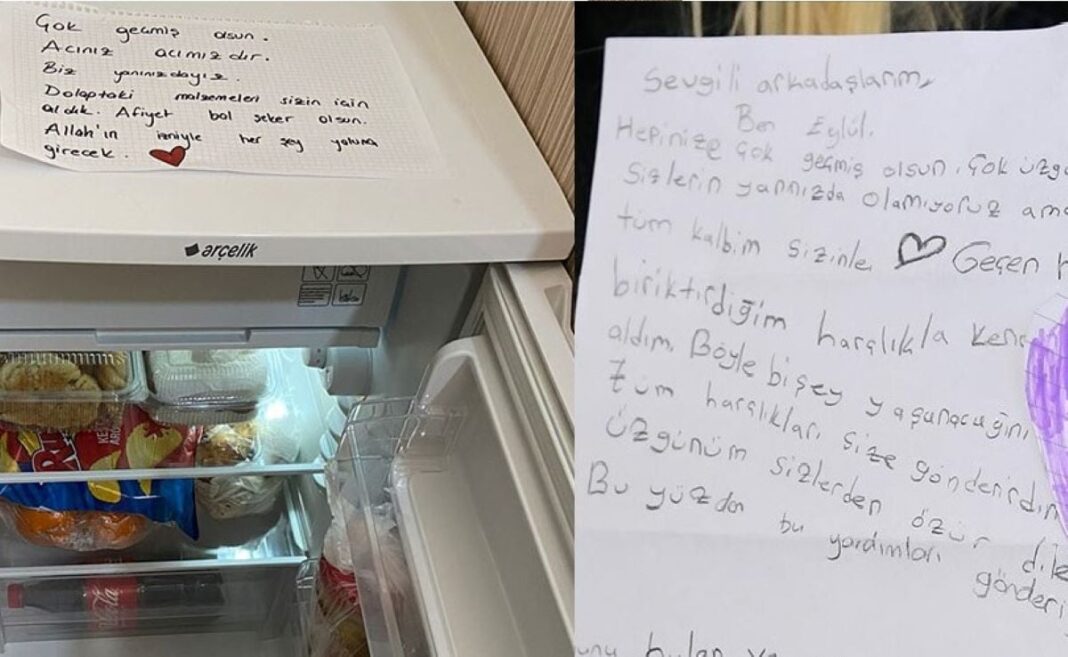 Çok geçmiş olsun.
Acınız acımızdır.
Biz yanınızdayız.
Dolaptaki malzemeleri sizin için
aldık. Afiyet bal şeker olsun.
Allah'ın izniyle her şey yoluna
girecek.
arçelik
Sevgili arkadaşlarım,
Ben Eylül.
Hepinize çok geçmiş olsun. Çok üzgü
Sizlerin yanınızda olamıyoruz ama
tüm kalbim sizinle. Geçen h
biriktirdiğim harçlıkla ken
aldım. Böyle bişey yaşanacağını
tüm harçlıkları size gönderirdim
Üzgünüm sizlerden özür dile
Bu yüzden bu yardımları
gönderi
bulan